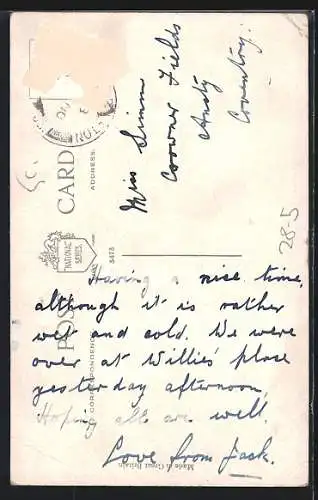 Miss Simm
Corner Fields
Ansty
Coventry.
POST CARD
CORRESPONDENCE
ADDRESS.
NATIONAL
SERIES
5475
Made in Great Britain
28-5
Having a nice time,
although it is rather
wet and cold. We were
over at Willies' place
yesterday afternoon,
Hoping all are well.
Love from Jack.